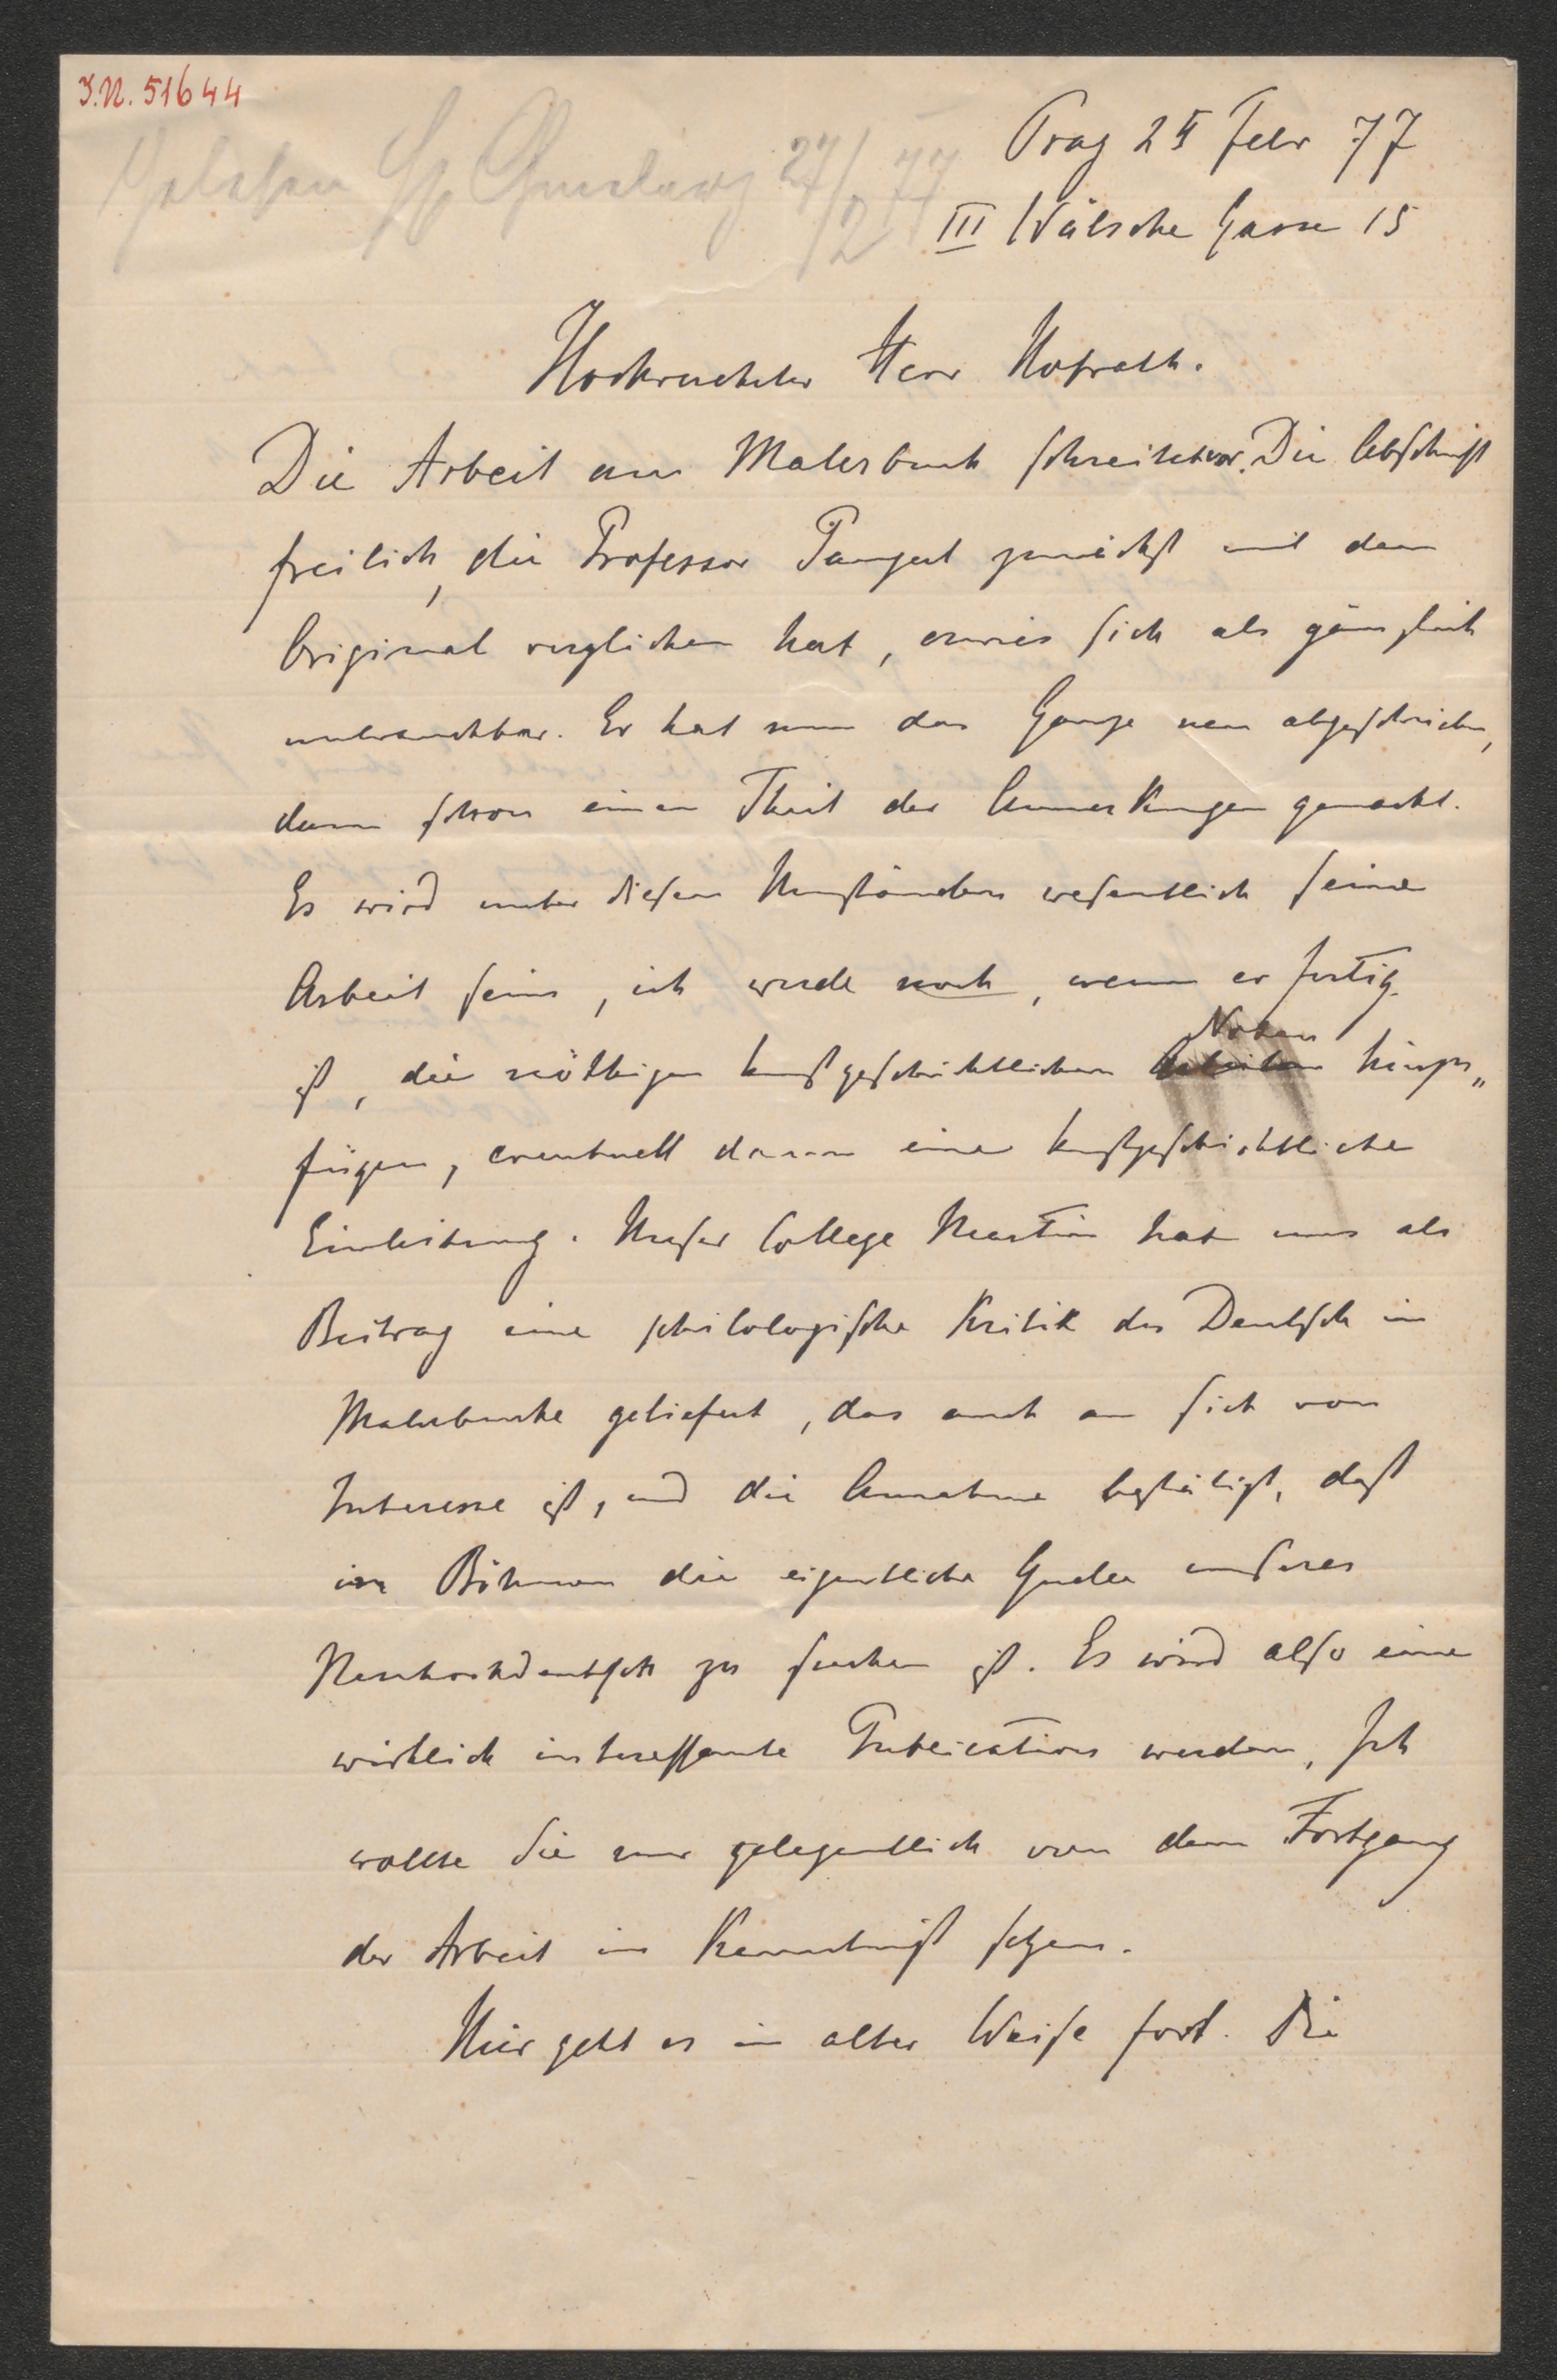 I.N. 51644
Gelesen 27/2 77
Prag 25 Febr 77
III Wälsche Gasse 15
Hochverehrter Herr Hofrath.
Die Arbeit am Malerbuch schreitet vor. Die Abschrift
freilich, die Professor Pangerl zunächst mit dem
Original verglichen hat, erwies sich als gänzlich
unbrauchbar. Er hat nun das Ganze neu abgeschrieben,
dann schon einen Theil der Anmerkungen gemacht.
Es wird unter diesen Umständen wesentlich seine
Arbeit sein, ich werde noch, wenn er fertig
Noten
ist, die nöthigen kunstgeschichtlichen hinzu„
fügen, eventuell dann eine kunstgeschichtliche
Einleitung. Unser College Martin hat uns als
Beitrag eine philologische Kritik des Deutsch im
Malerbuche geliefert, das auch an sich von
Interesse ist, und die Annahme bestätigt, daß
in Böhmen die eigentliche Quelle unseres
Neuhochdeutsch zu suchen ist. Es wird also eine
wirklich interessante Publication werden. Ich
wollte Sie nur gelegentlich von dem Fortgang
der Arbeit in Kenntniß setzen.
Hier geht es in alter Weise fort. Die